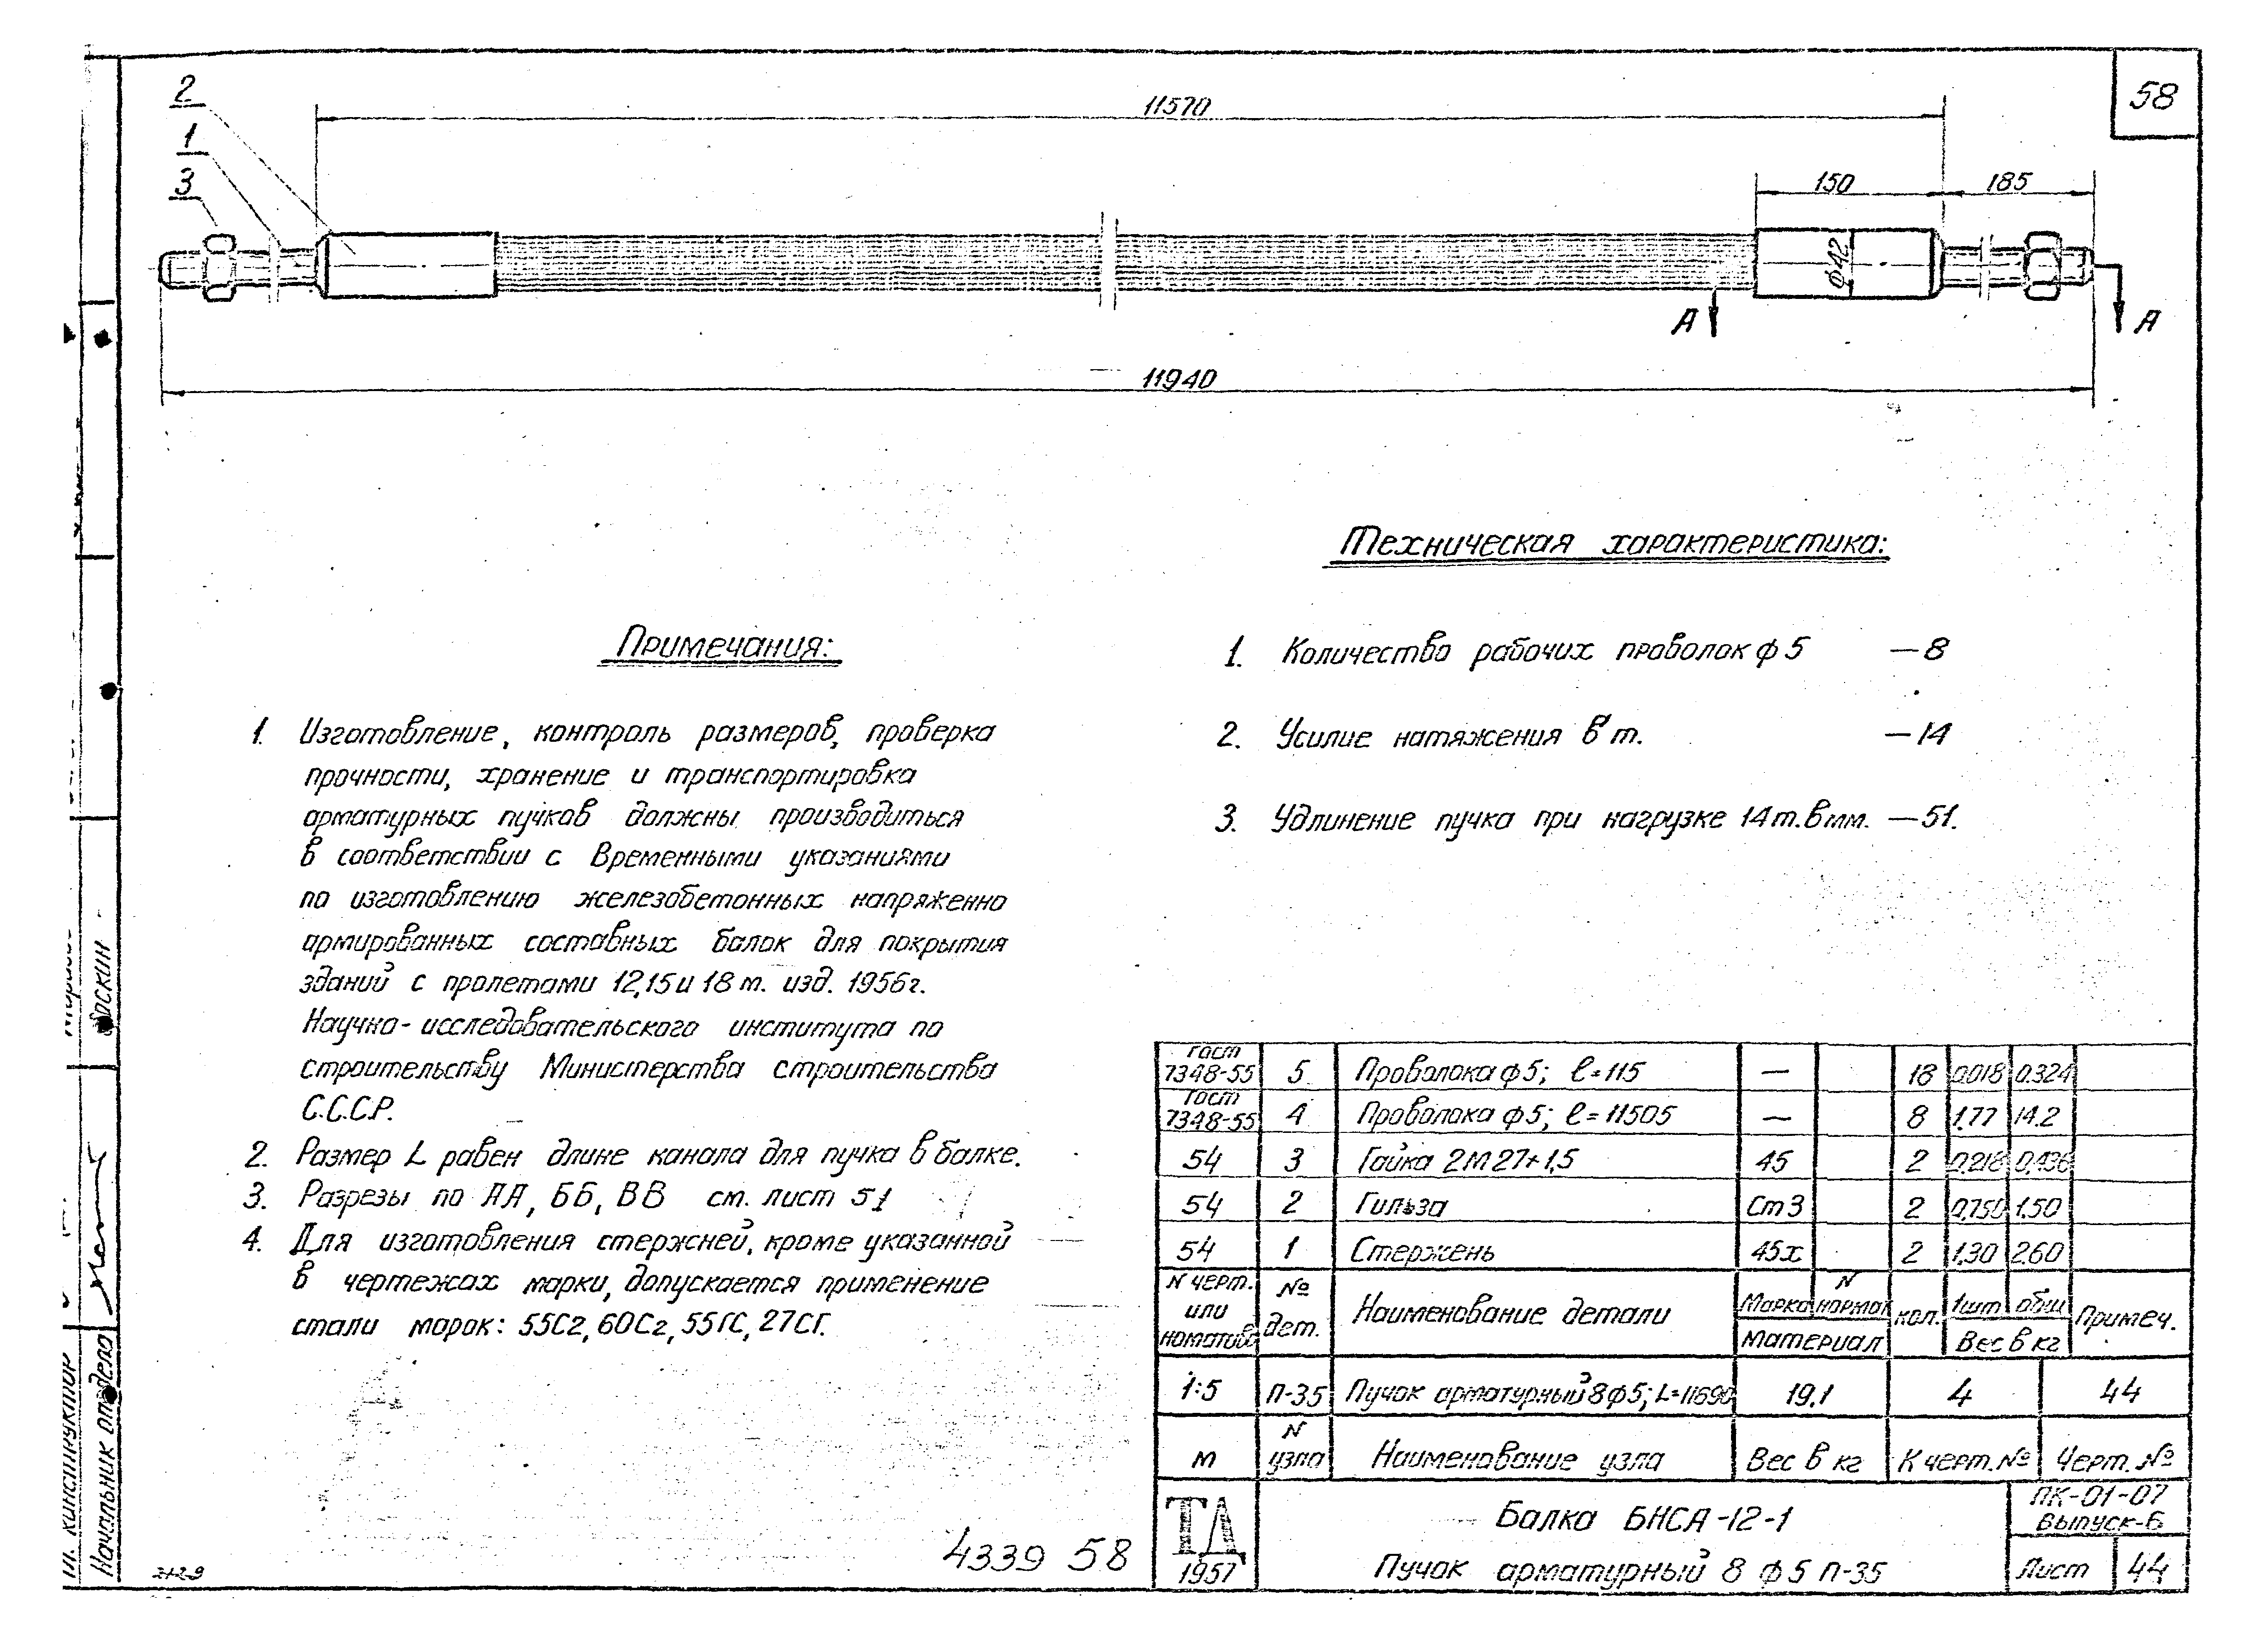 58
2
1
3
11570
150
185
ф42
А
А
11940
Техническая характеристика:
1. Количество рабочих проволок ф 5 — 8
2. Усилие натяжения в т. — 14
3. Удлинение пучка при нагрузке 14 т. в мм. — 51.
Примечания:
1. Изготовление, контроль размеров, проверка
прочности, хранение и транспортировка
арматурных пучков должны производиться
в соответствии с Временными указаниями
по изготовлению железобетонных напряженно
армированных составных балок для покрытия
зданий с пролетами 12, 15 и 18 м. изд. 1956г.
Научно-исследовательского института по
строительству Министерства строительства
С.С.С.Р.
2. Размер L равен длине канала для пучка в балке.
3. Разрезы по АА, ББ, ВВ см. лист 51
4. Для изготовления стержней, кроме указанной
в чертежах марки, допускается применение
стали марок: 55С2, 60С2, 55ГС, 27СГ.
гост 7348-55 5 Проволока ф 5; ℓ=115 — 18 0.018 0.324
гост 7348-55 4 Проволока ф 5; ℓ=11505 — 8 1.77 14.2
54 3 Гайка 2М 27×1,5 45 2 0,218 0,436
54 2 Гильза Ст3 2 0,750 1.50
54 1 Стержень 45х 2 1,30 2.60
N черт. или №дет. Наименование детали Марка N кол. 1шт. общ Примеч.
Материал Вес в кг
1:5 П-35 Пучок арматурный 8ф5; L=11690 19.1 4 44
М N узла Наименование узла Вес в кг К черт. № Черт. №
ТД 1957
Балка БНСА-12-1
Пучок арматурный 8 ф 5 П-35
ПК-01-07
Выпуск-6
Лист 44
4339 58
Начальник отдела